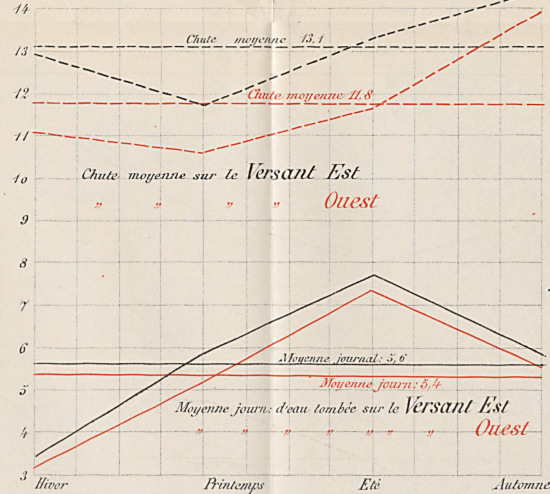 14
Chute moyenne 13,1
13
12
Chute moyenne 11,8
11
10
Chute moyenne sur le Versant Est
" " " " Ouest
9
8
7
6
Moyenne journal: 5,6
5
Moyenne journ: 5,4
Moyenne journ: d'eau tombée sur le Versant Est
4
" " " " " " " Ouest
3
Hiver Printemps Eté Automne